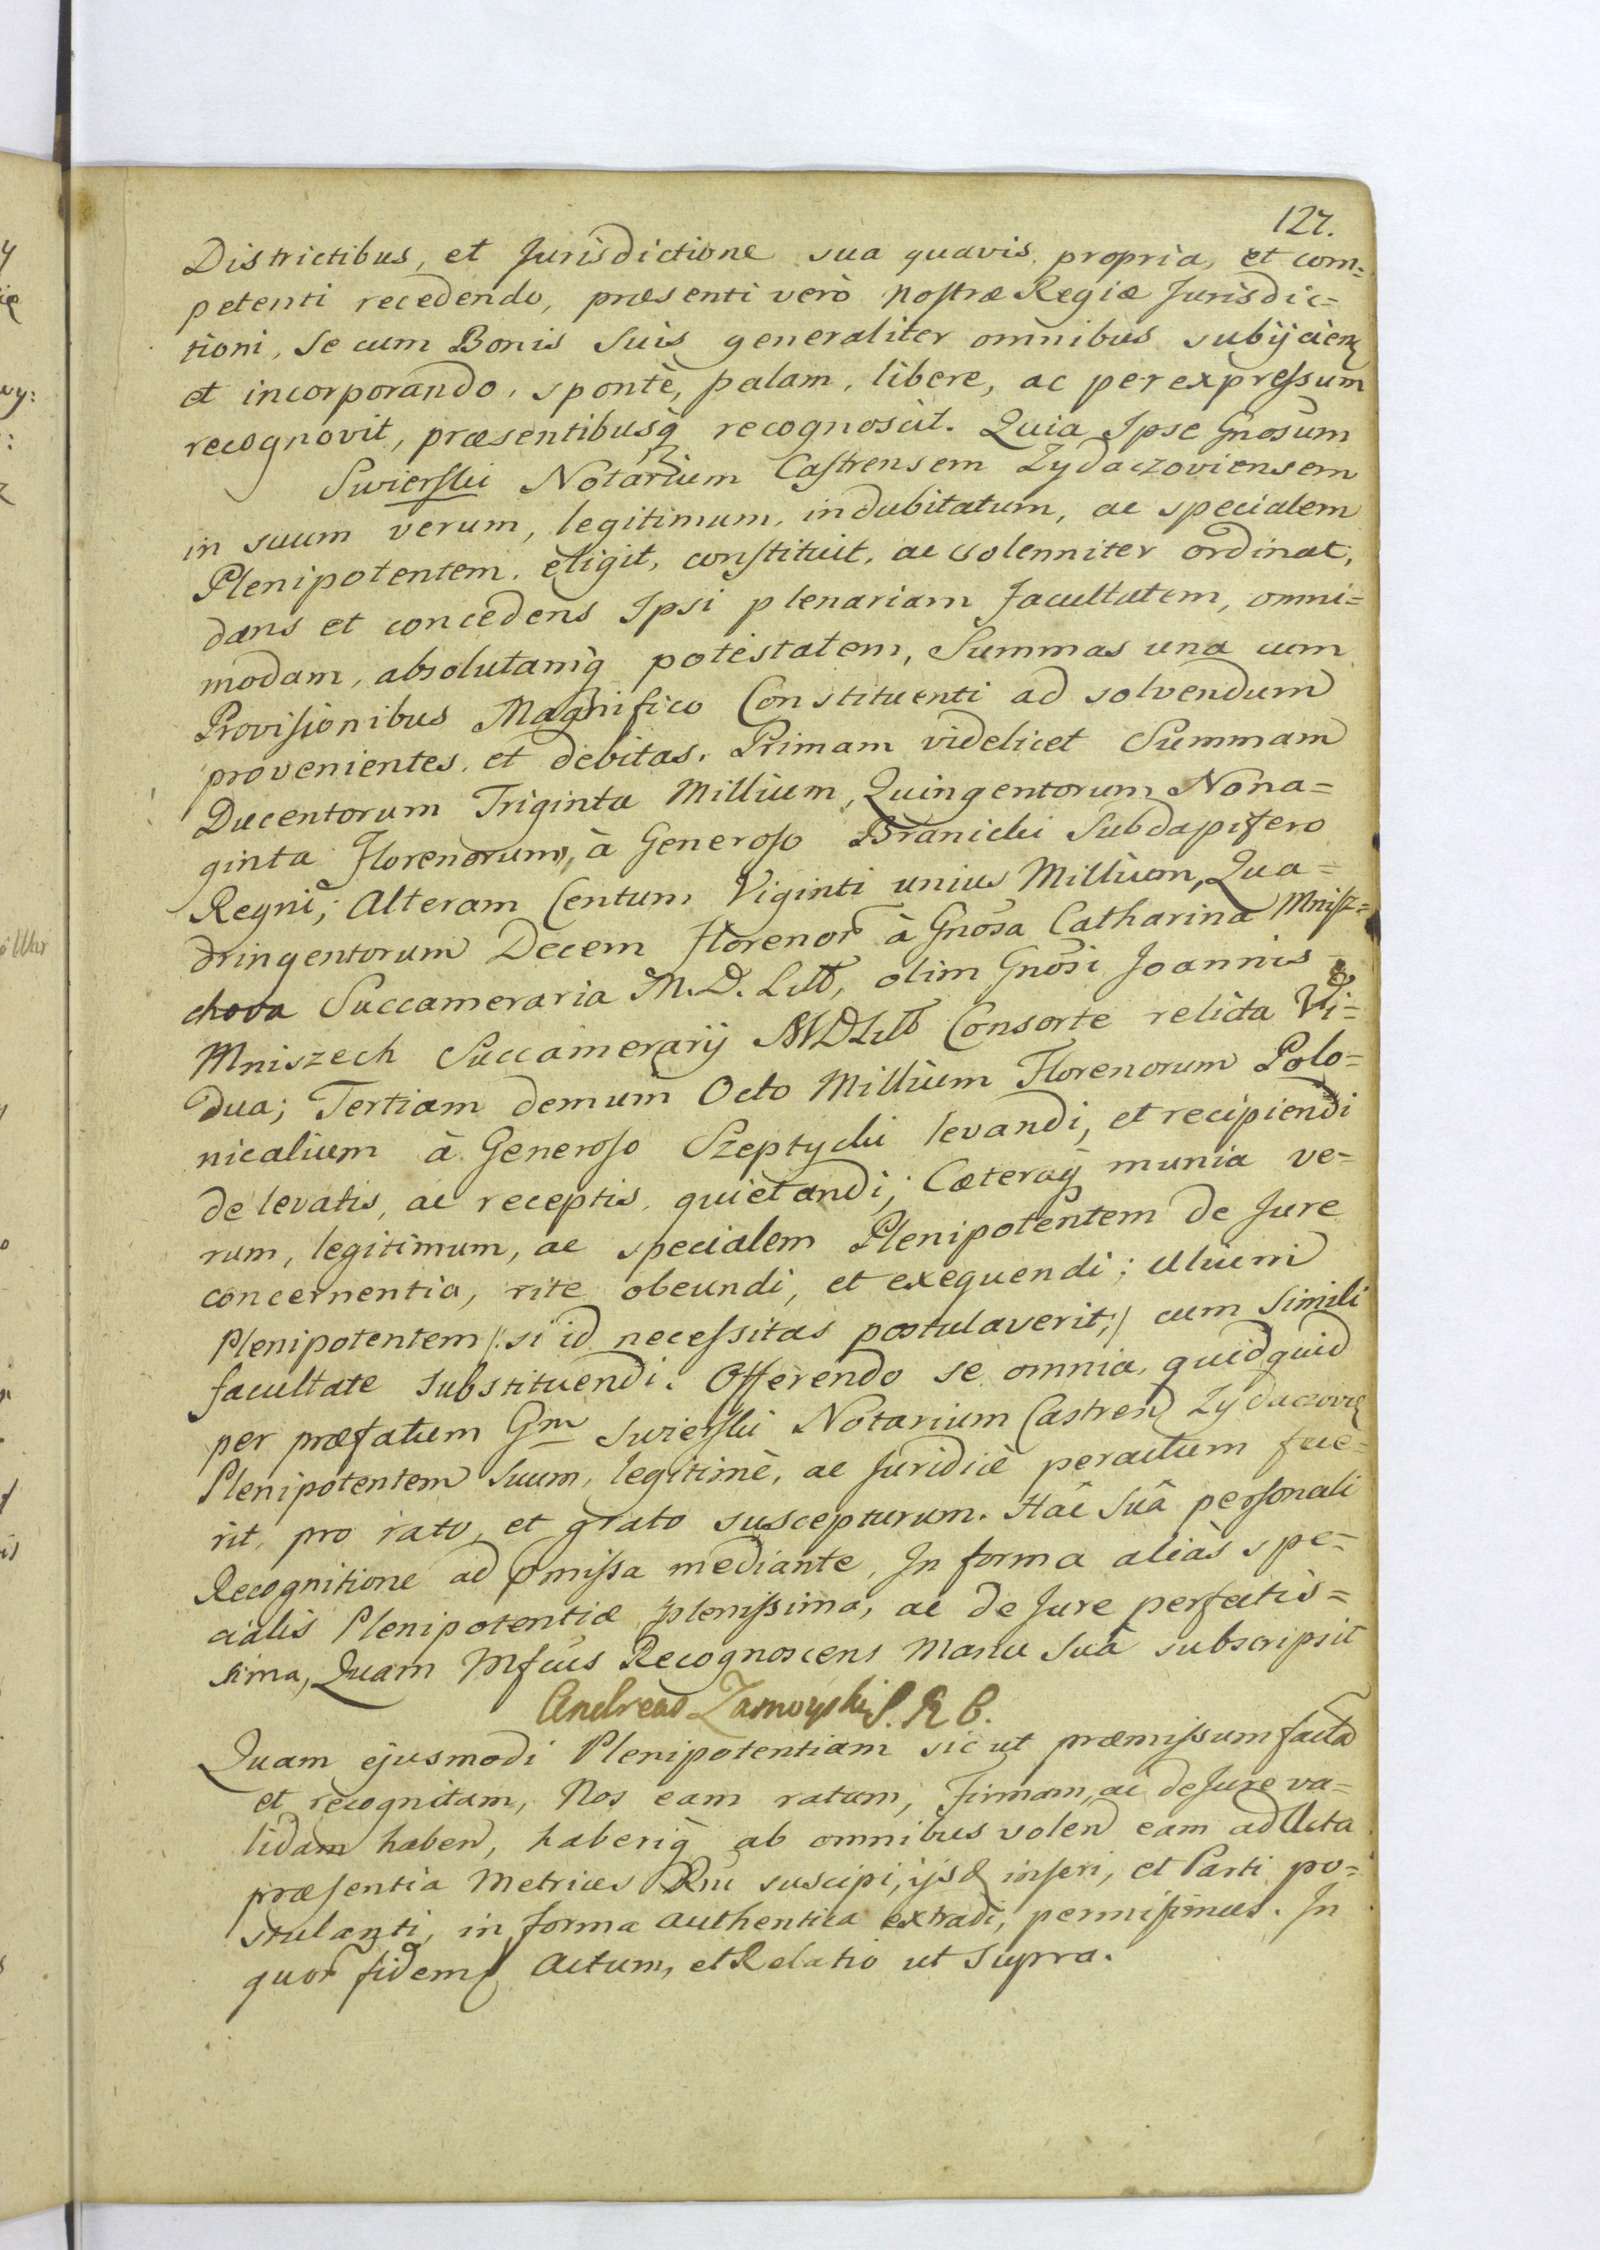 127.
Districtibus, et Jurisdictione sua quavis propria, et com=
petenti recedendo, præsenti verò Nostræ Regiæ Jurisdic=
tioni, Se cum Bonis Suis generaliter omnibus subijcien
et incorporando, spontè, palam, libere, ac per expressum
recognovit, præsentibusq̀ recognoscit. Quia Ipse Gnosum
Swierski Notarium Castrensem Zydaczoviensem
in suum verum, legitimum, indubitatum, ac specialem
Plenipotentem, eligit, constituit, ac solenniter ordinat,
dans et concedens Ipsi plenariam facultatem, omni=
modam, absolutamq̀ potestatem, Summas una cum
Provisionibus Magnifico Constituenti ad solvendum
provenientes, et debitas. Primam videlicet Summam
Ducentorum Triginta Millium, Quingentorum Nona=
ginta Florenorum, à Generoso Branicki Subdapifero
Regni; Alteram Centum Viginti unius Millium, Qua=
dringentorum Decem florenor à Gnosa Catharina Mnisz=
chova Succameraria M.D. Litt, olim Gnosi Joannis
Mniszech Succamerarij MDLitt Consorte relicta Vi=
dua; Tertiam demum Octo Millium Florenorum Polo=
nicalium à Generoso Szeptycki levandi, et recipiendi
de levatis, ac receptis, quietandi; Cæteraq̀ munia ve=
rum, legitimum, ac specialem Plenipotentem de Jure
concernentia, rite obeundi, et exequendi; Alium
Plenipotentem /: si id necessitas postulaverit :/ cum simili
facultate substituendi. Offerendo se omnia, quidquid
per præfatum Gm Swierski Notarium Castren Zydaczovien
Plenipotentem Suum, legitimè, ac Juridicè peractum fue=
rit, pro rato, et grato suscepturum. Hâc Suâ personali
Recognitione ad pmissa mediante, In forma aliàs spe=
cialis Plenipotentiæ plenissima, ac de Jure perfectis=
sima, Quam Mfcus Recognoscens Manu Suâ subscripsit
Andreas Zamoyski S. R C.
Quam ejusmodi Plenipotentiam sicut præmissum facta
et recognitam, Nos eam ratam, firmam, ac de Jure va=
lidam haben, haberiq̀ ab omnibus volen eam ad Acta
præsentia Metrices Rni suscipi, ijsq inseri, et Parti po=
stulanti, in forma authentica extradi, permisimus. In
quor fidem Actum, et Relatio ut supra.